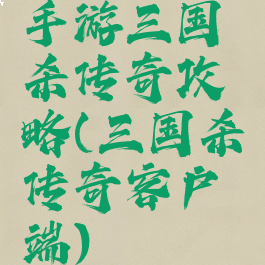 手游三国
杀传奇攻
略(三国杀
传奇客户
端)